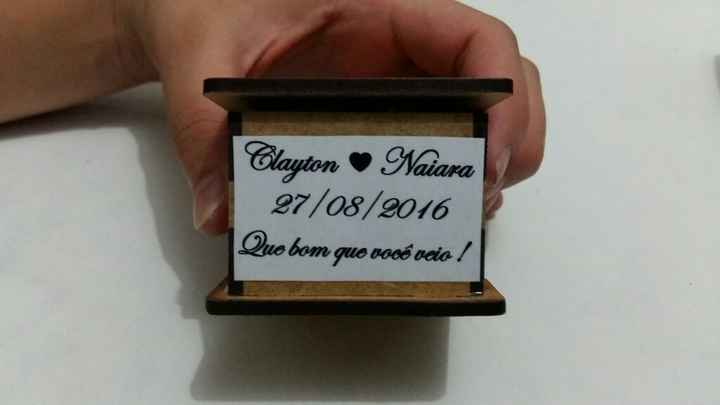 Clayton ♥ Naiara
27/08/2016
Que bom que você veio !